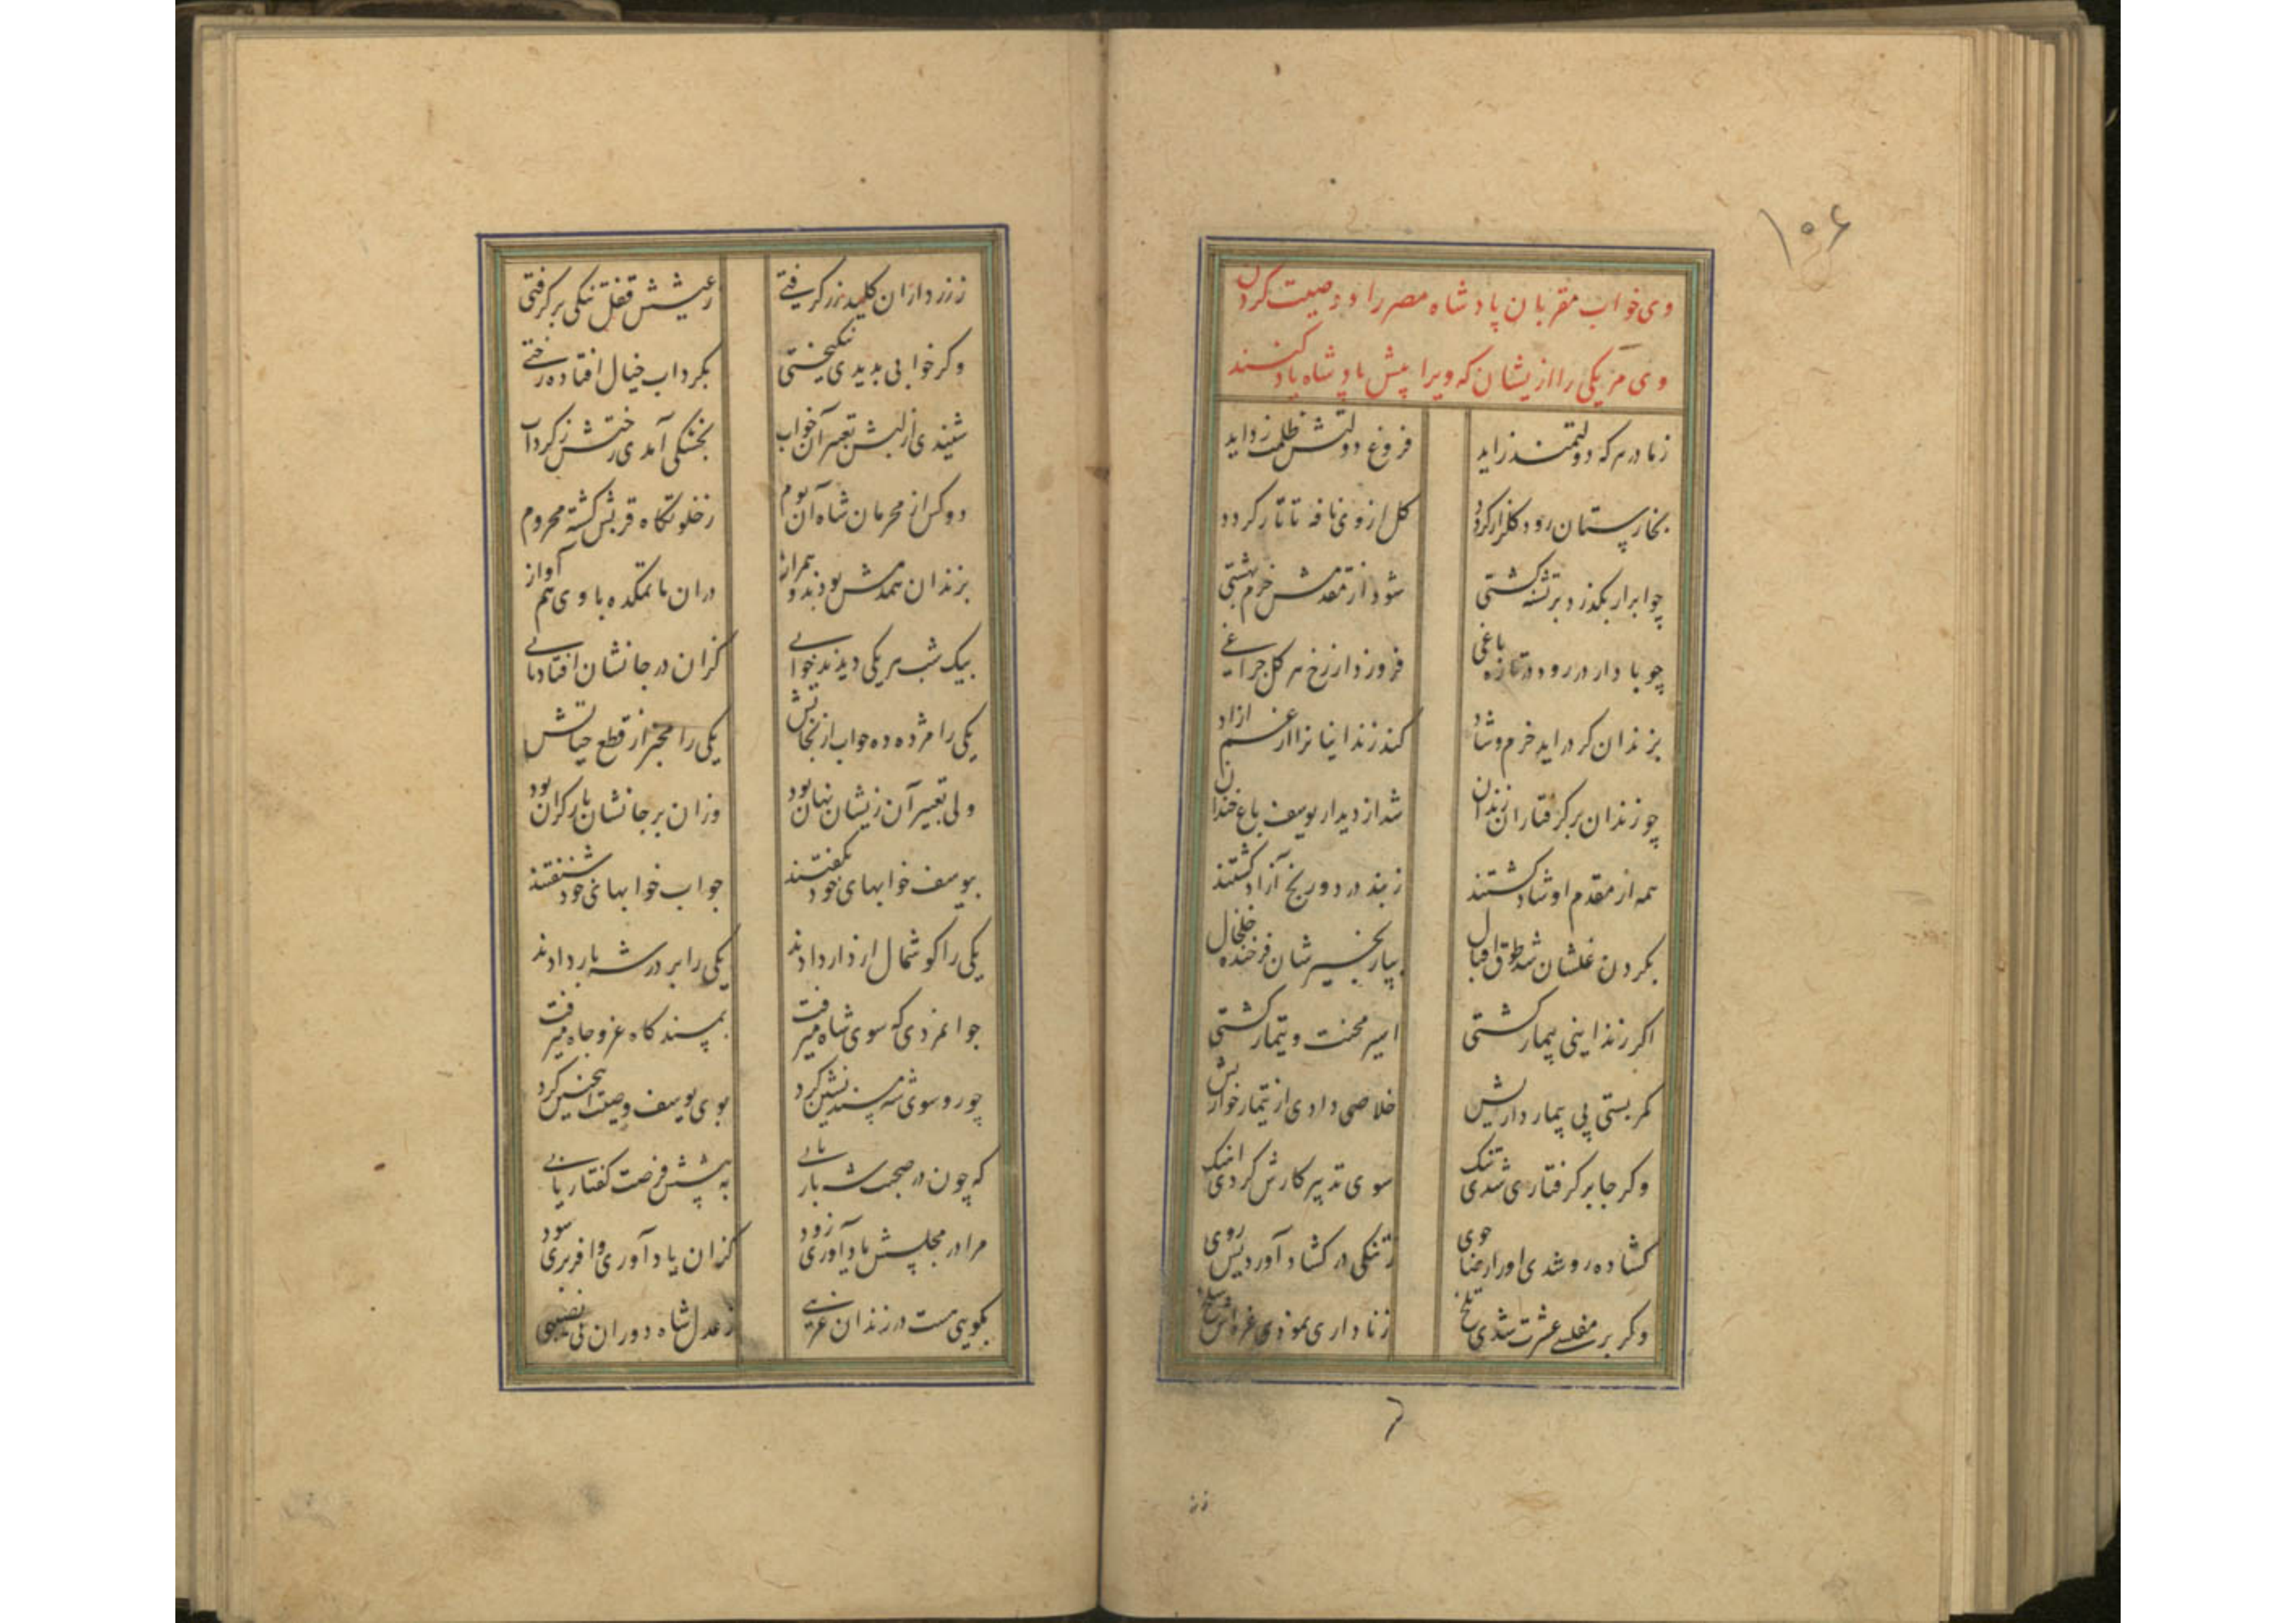 ۱۰۶
وی خواب مقربان پادشاه مصر را و وصیت کردن
وی مر یکی را ازیشان که ویرا پیش پادشاه یاد کنند
ز مادر هر که دولتمند زاید فروغ دولتش ظلمت زداید
بخارستان رود گلزار گردد گل از وی نافه تاتار گردد
چو ابر ار بگذرد بر تشنه کشتی شود از مقدمش خرم بهشتی
چو باد ار در رود در تازه باغی فروزد از رخ هر گل چراغی
بزندان گر در اید خرم و شاد کند زندانیانرا از غم ازاد
چو زندان بر گرفتاران زندان شد از دیدار یوسف باغ خندان
همه از مقدم او شاد گشتند ز بند درد و رنج آزاد گشتند
بگردن غلشان شد طوق اقبال بپا زنجیرشان فرخنده خلخال
اگر زندانیی بیمار گشتی اسیر محنت و تیمار گشتی
کمر بستی پی بیمار داریش خلاصی دادی از تیمار خواریش
وگر جا بر گرفتاری شدی تنک سوی تدبیر کارش کردی اهنک
گشاده رو شدی او را رضا جوی ز تنگی در گشاد آوردیش روی
وگر بر مفلسی عشرت شدی تلخ ز ناداری نمودی غره اش سلخ
ز زر
ز زرداران کلید زر گرفتی ز عیشش قفل تنگی بر گرفتی
وگر خوابی بدیدی نیکبختی بگرداب خیال افتاده رختی
شنیدی از لبش تعبیر آن خواب بخشکی آمدی رختش ز گرداب
دو کس از محرمان شاه آن بوم ز خلوتگاه قربش گشته محروم
بزندان همدمش بودند و همراز در ان ماتمکده با وی هم آواز
بیک شب هر یکی دیدند خوابی کزان در جانشان افتاد تابی
یکی را مژده ده خواب از نجاتش یکی را مخبر از قطع حیاتش
ولی تعبیر آن زیشان نهان بود وزان بر جانشان بار گران بود
بیوسف خوابهای خود بگفتند جواب خوابهای خود شنفتند
یکی را گوشمال از دار دادند یکی را بر در شه بار دادند
جوانمردی که سوی شاه میرفت بمسند گاه عز و جاه میرفت
چو رو سوی شه مسند نشین کرد بوی یوسف وصیت اینچنین کرد
که چون در صحبت شه بار یابی به پیشش فرصت گفتار یابی
مرا در مجلسش یاد آوری زود کزان یاد آوری وافر بری سود
بگویی هست در زندان غریبی ز عدل شاه دوران بی نصیبی